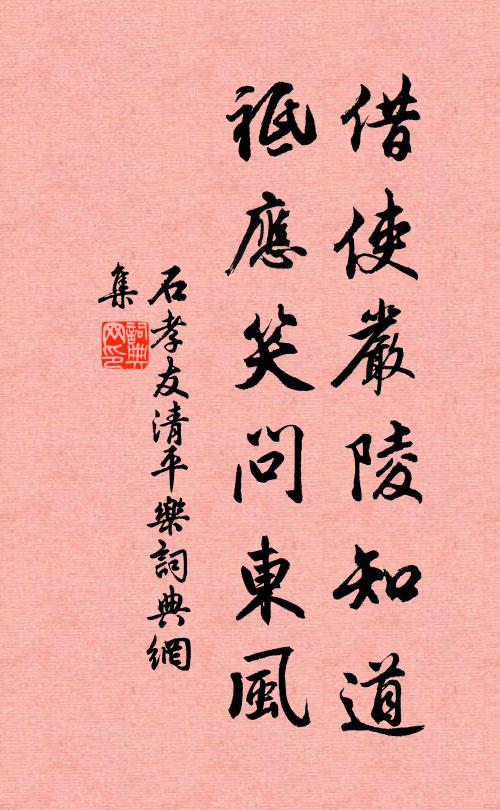 借使嚴陵知道
祗應笑問東風
石孝友清平樂詞典網
集
詞典網印